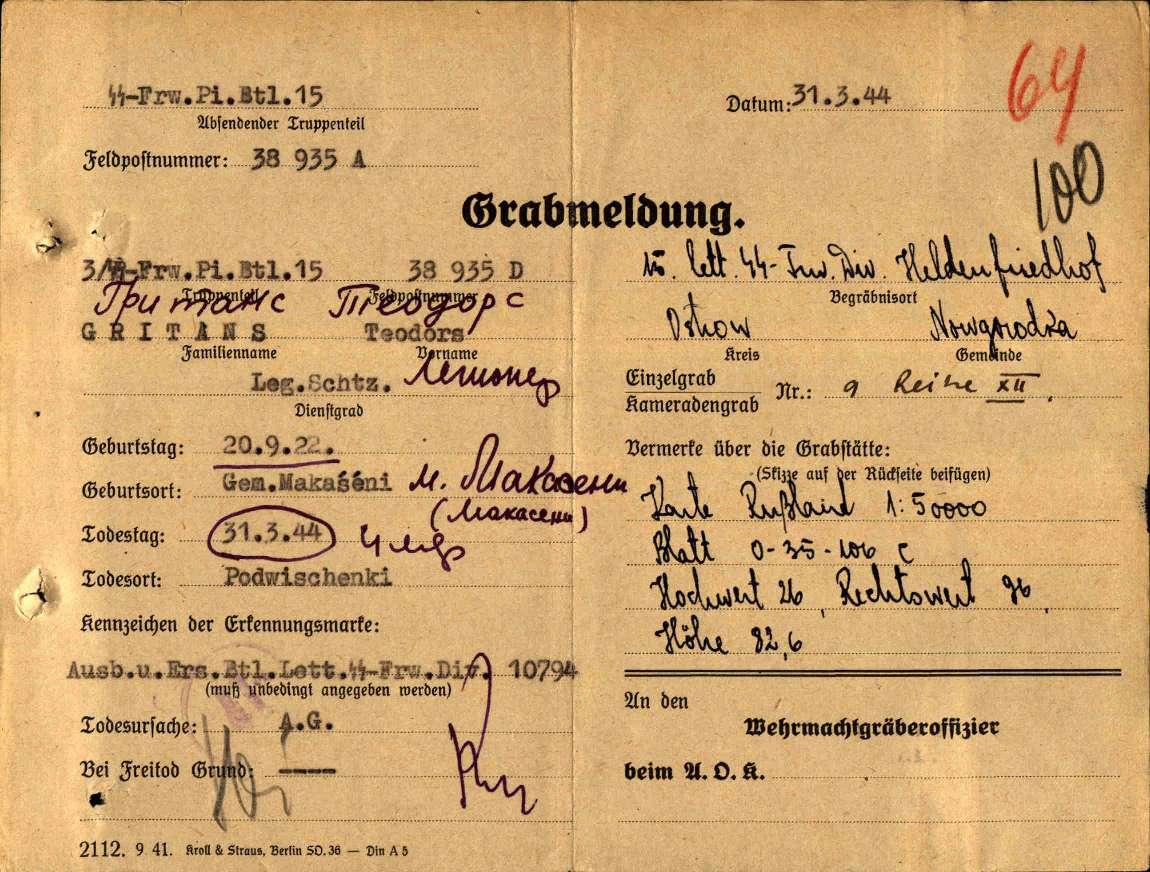 ϟϟ-Frw.Pi.Btl.15
Absendender Truppenteil
Feldpostnummer: 38 935 A
Datum: 31.3.44
64
100
Grabmeldung.
3/ϟϟ-Frw.Pi.Btl.15 38 935 D
Truppenteil Feldpostnummer
Гританс Теодорс
GRITANS Teodors
Familienname Vorname
Leg.Schtz. Легионер
Dienstgrad
Geburtstag: 20.9.22.
Geburtsort: Gem.Makašéni м. Макасени
(Макасени)
Todestag: 31.3.44
Todesort: Podwischenki
Kennzeichen der Erkennungsmarke:
Ausb.u.Ers.Btl.Lett.ϟϟ-Frw.Div. 10794
(muß unbedingt angegeben werden)
Todesursache: A.G.
Bei Freitod Grund: ----
2112. 9 41. Kroll & Straus, Berlin SO. 36 — Din A 5
15. lett. ϟϟ-Frw. Div. Heldenfriedhof
Begräbnisort
Ostrow Nowgorodka
Kreis Gemeinde
Einzelgrab
Kameradengrab Nr.: 9 Reihe XII.
Vermerke über die Grabstätte:
(Skizze auf der Rückseite beifügen)
Karte Rußland 1:50000
Blatt O-35-106 C
Hochwert 26, Rechtswert 96,
Höhe 82,6
An den
Wehrmachtgräberoffizier
beim A. O. K.